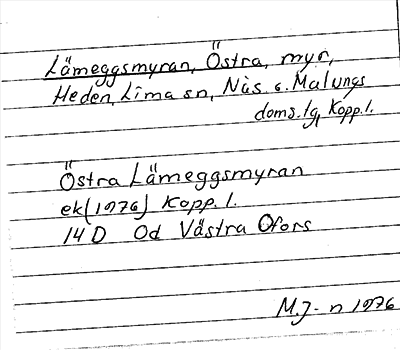 Lämeggsmyran, Östra, myr,
Heden, Lima sn, Nås o. Malungs
doms.lg, Kopp.l.
Östra Lämeggsmyran
ek (1976) Kopp.l.
14 D Od Västra Ofors
M.J-n 1976